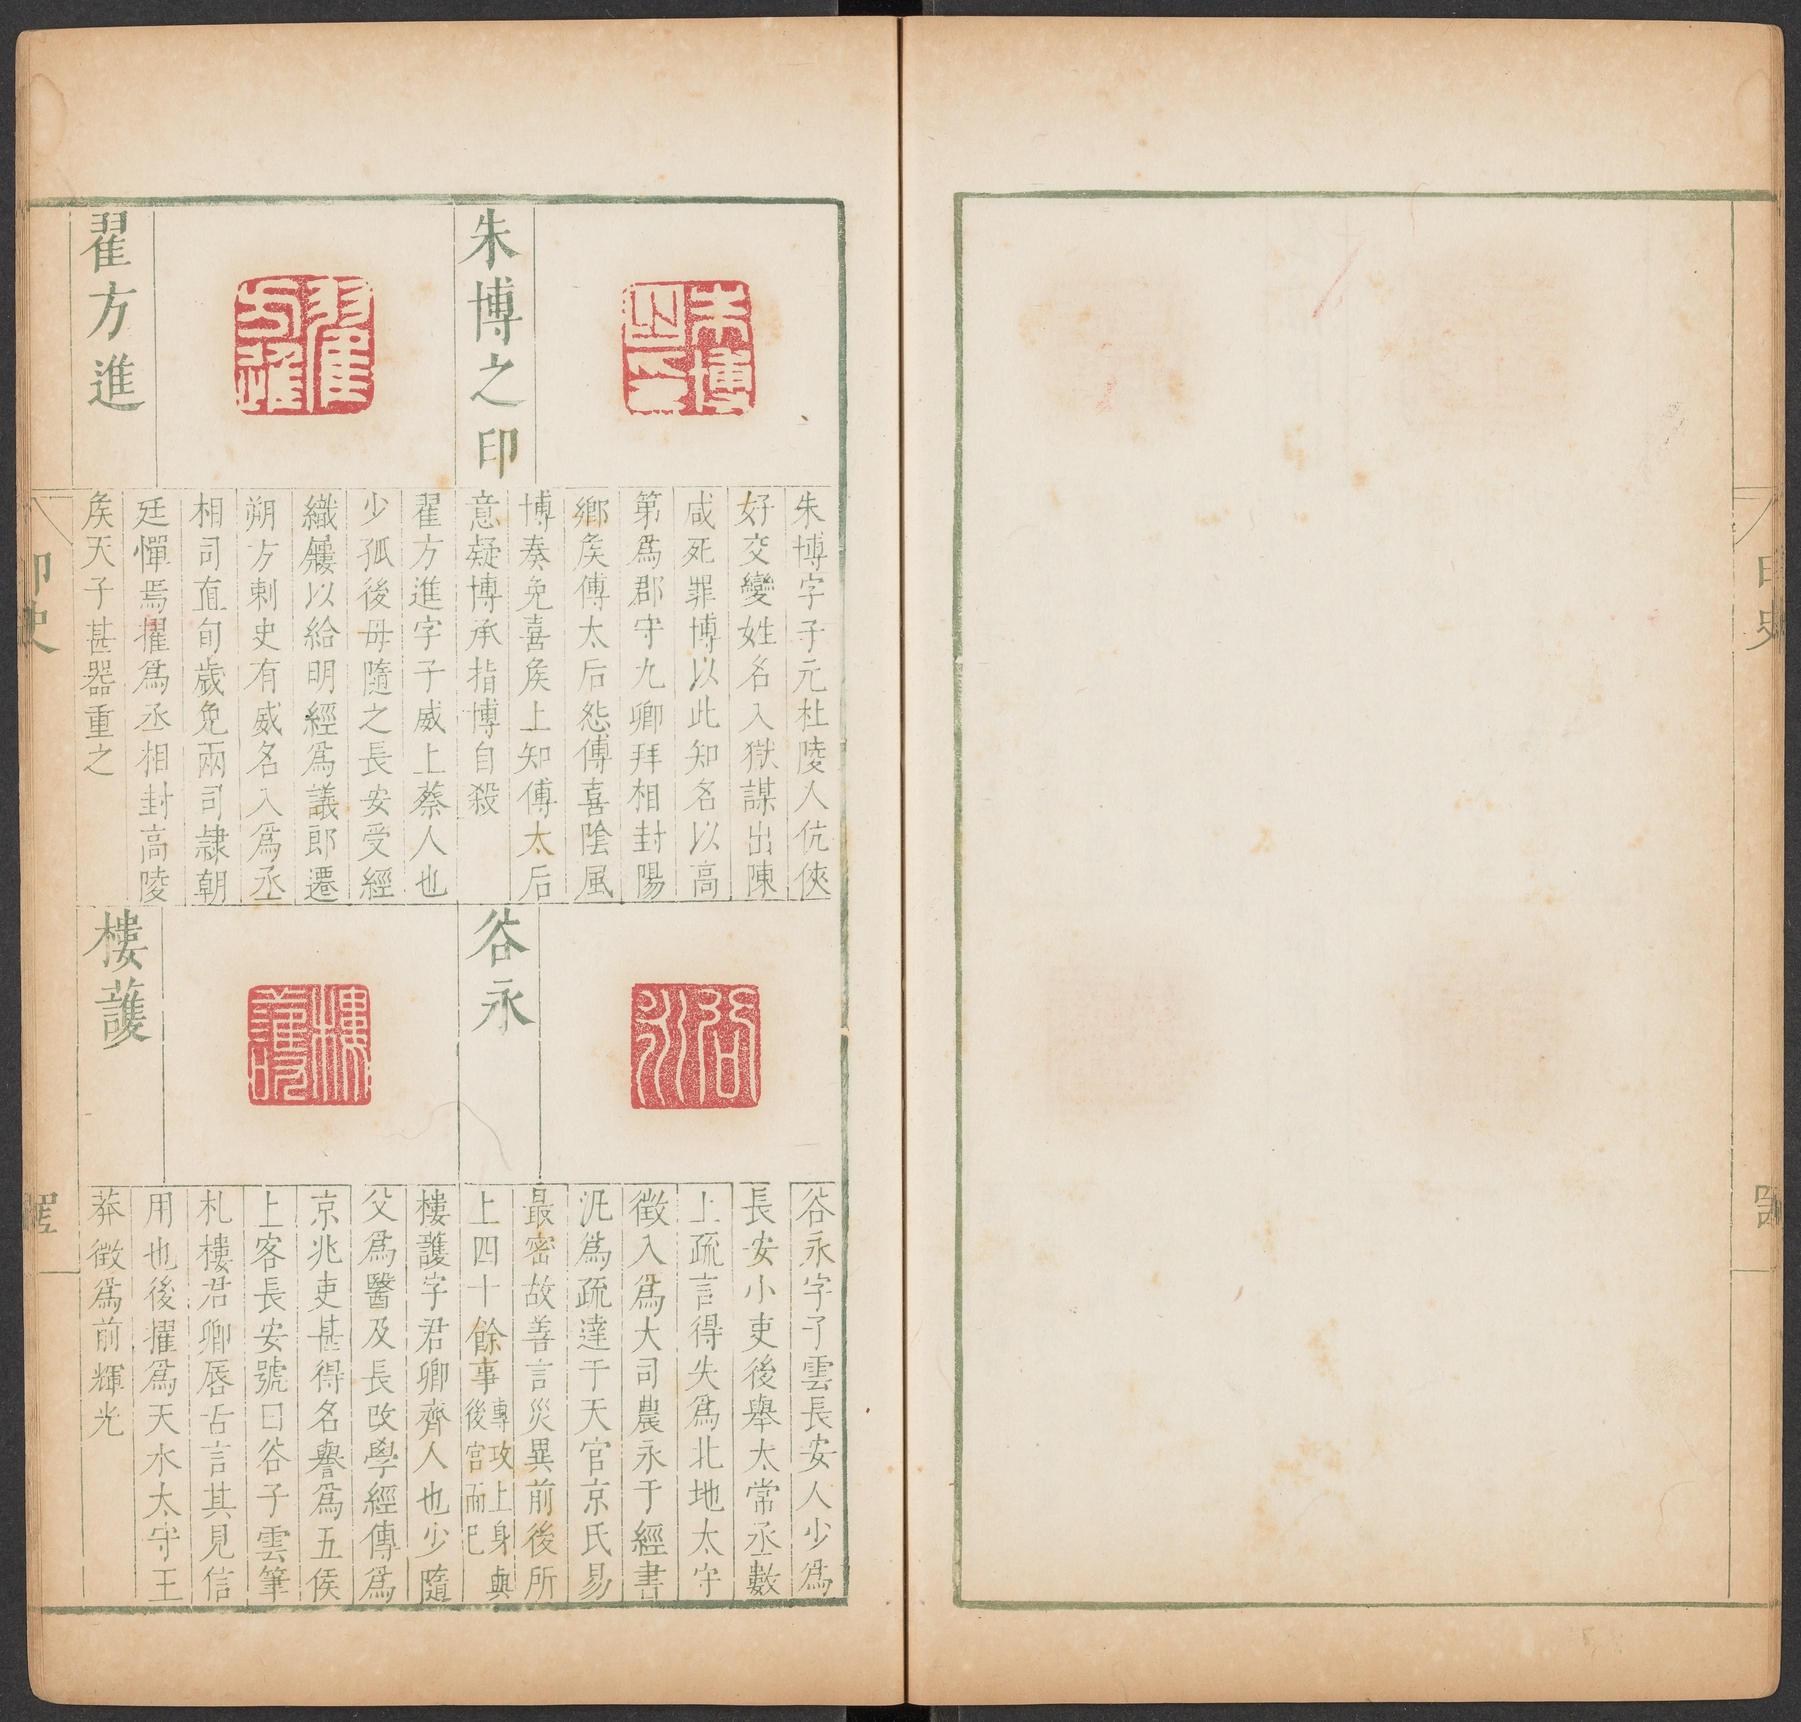 印史
朱博之印
朱博字子元杜陵人伉俠
好交變姓名入獄謀出陳
咸死罪博以此知名以高
第爲郡守九卿拜相封陽
鄉矦傅太后怨傅喜陰風
博奏免喜矦上知傅太后
意疑博承指博自殺
翟方進
翟方進字子威上蔡人也
少孤後母隨之長安受經
織屨以給明經爲議郎遷
朔方剌史有威名入爲丞
相司直旬歲免兩司隷朝
廷憚焉擢爲丞相封高陵
矦天子甚器重之
谷永
谷永字子雲長安人少爲
長安小吏後舉太常丞數
上疏言得失爲北地太守
徵入爲大司農永于經書
汎爲疏達于天官京氏易
最密故善言災異前後所
上四十餘事專攻上身與後宮而已
樓護
樓護字君卿齊人也少隨
父爲醫及長改學經傳爲
京兆吏甚得名譽爲五侯
上客長安號曰谷子雲筆
札樓君卿唇舌言其見信
用也後擢爲天水太守王
莽徵爲前輝光
印史